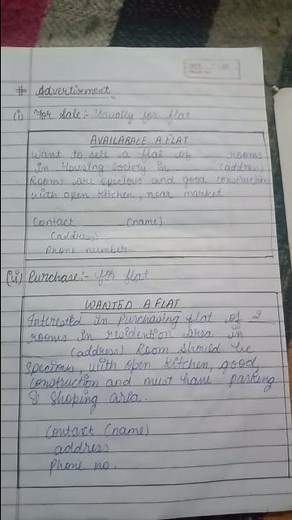 # Advertisement
(i) For Sale:- Usually for flat
AVAILABALE A FLAT
Want to sell a flat of ___ rooms
in Housing Society in ___ (address)
Rooms are specious and good construction
with open kitchen, near market
Contact ___ (name)
(address)
Phone number
(ii) Purchase:- for flat
WANTED A FLAT
Interested in purchasing flat of 2
rooms in residention area in
(address) Room should be
specious, with open kitchen, good
construction and must have parking
& shoping area.
Contact (name)
address
Phone no.